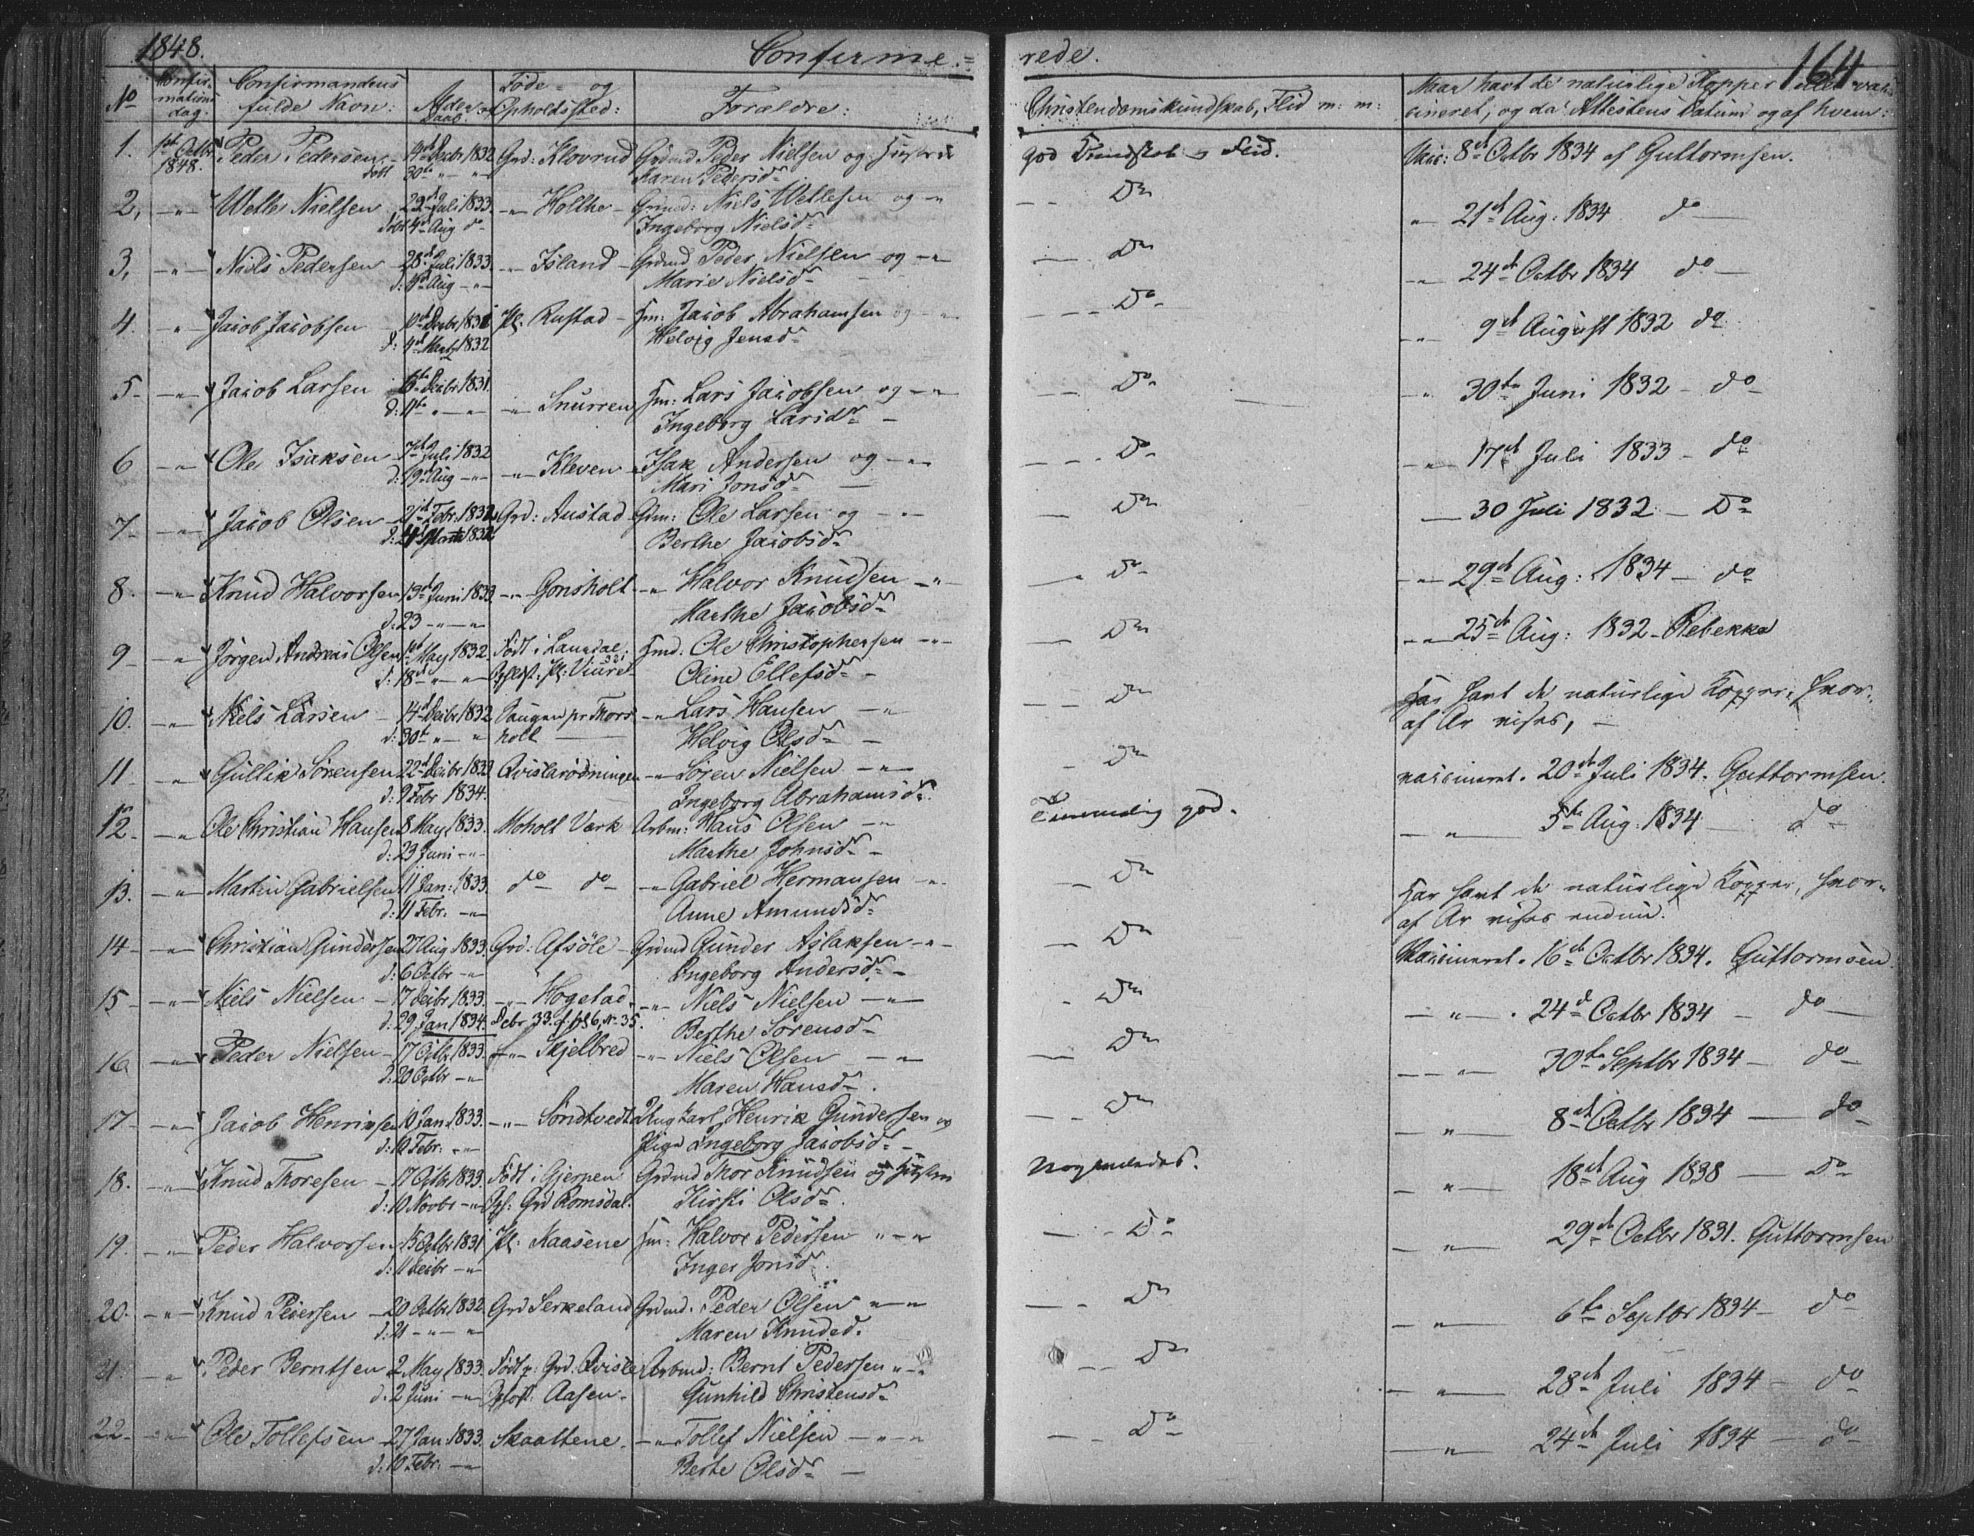 1848.
Confirme=
rede.
164
No
Confir-
mations
dag.
Confirmandens
fulde Navn:
Alder og
Daab:
Føde= og
Opholdssted:
Forældre:
Christendomskundskab, Flid m: m:
Naar havt de naturlige Kopper eller vac-
cineret, og da Attestens Datum og af hvem:
1. 1st Octbr 1848. Peder Pedersen 14d Decbr 1832 Grd: Klovrud Grdmd Peder Nielsen og Hustr
døbt 30te " " Karen Pedersd. god Kundskab og Flid. Vac: 8de Octbr 1834 af Guttormsen.
2, -"- Wetle Nielsen 22d Juli 1833. -"- Holthe - Grdmd: Niels Wetlesen og -"
døbt 4d Aug do Ingeborg Nielsd. - - Do " 21d Aug: 1834 do
3, -"- Niels Pedersen 28d Juli 1833. -"- Island - Grdmd Peder Nielsen og -"
d: 11d Aug -"- Marie Nielsd. - Do -"- 24d Octbr 1834 do
4. -"- Jacob Jacobsen 10d Decbr 1831 Pl: Rustad - Hm: Jacob Abrahamsen og -"
d: 4d Marts 1832 Helvig Jensd. - Do -"- 9d August 1832 do
5. -"- Jacob Larsen Decbr 1831. -"- Snurren Hm: Lars Jacobsen og -"
d: " " Ingeborg Larsd. - Do " 30te Juni 1832 - do
6 -"- Ole Isaksen 7d Juli 1832 -"- Kleven - Isak Andersen og -"
d: 19d Aug -"- Mari Jonsd. - Do -"- 17d Juli 1833 - do
7. -"- Jacob Olsen 21d Febr. 1832 Grd: Austad Gdm: Ole Larsen og -"
d: Berthe Jacobsd. - Do - 30 Juli 1832 - Do
8. -"- Knud Halvorsen 13d Juni 1833. -"- Gonsholt -"- Halvor Knudsen -"-
d: 23 -"- Marthe Jacobsd. - Do -"- 29d Aug: 1834 - do
9 -"- Jørgen Andreas Olsen 1st May 1832. Født i Laurdal. Hmd. Ole Christophersen -"-
d: 18d " " Oline Ellefsd. - Do -"- 25d Aug: 1832 - Rebekka
10. -"- Niels Larsen - 14d Decbr 1832 Haugen pr Thors- -"- Lars Hansen -"
d: 30te " " holt Helvig Olsd. - Do Har havt de naturlige Kopper, hvor-
af Ar vises, -
11 -"- Gullik Sørensen 22d Decbr 1833 Qvislarødningen -"- Søren Nielsen -"
d: 9 Febr 1834. Ingeborg Abrahamsd. - Do vaccineret. 20d Juli 1834. Guttormsen.
12. -"- Ole Christian Hansen 8 May 1833. Moholt Værk Arbm: Hans Olsen -"
d: 23 Juni -"- Marthe Johnsd. - Temmelig god. -"- 5te Aug: 1834 do
13. -"- Martin Gabrielsen 11 Jan: 1833. do do -"- Gabriel Hermansen -"
d: 11 Febr: -"- Anne Amundsd. - Do Har havt de naturlige Kopper, hvor-
af Ar vises endnu.
14 -"- Christian Gundersen 27 Aug 1833. Grd: Afsöle - Grdmd Gunder Aslaksen -"-
d: 6 Octbr -"- Ingeborg Andersd. - Do Vaccineret. 16d Octbr 1834. Guttormsen.
15 -"- Niels Nielsen - 17 Decbr 1833. -"- Hogstad, -"- Niels Nielsen -"
d: 29 Jan 1834. Debr 33. cf. pl 6, N. 35. Berthe Sørensd. - Do -"- 24d Octbr 1834 - do
16. -"- Peder Nielsen - 17 Octbr 1833. -"- Skjelbred -"- Niels Olsen -"
d: 20 Octbr -"- Maren Hansd. - Do -"- 30te Septbr 1834 - do
17. -"- Jacob Henriksen 10 Jan 1833. -"- Søndtvedt Ungkarl Henrik Gundersen og
d: 10 Febr: -"- Pige Ingeborg Jacobsd. - Do -"- 8d Octbr 1834 - do
18. -"- Knud Thoresen - 17 Octbr 1833. Født i Gjerpen Grdmd Thor Knudsen og Hustru
d: 10 Novbr -"- Grd Romsdal. Kirsti Olsd. Nogenledes. -"- 18d Aug 1838 - Do
19. -"- Peder Halvorsen 15 Octbr 1831 Pl: Kaasene Hm: Halvor Pedersen " -"
d: 11 Decbr -"- Inger Jonsd. - Do -"- 29d Octbr 1831. Guttormsen
20. -"- Knud Pedersen - 20 Octbr 1832 Grd Serkeland Grdmd. Peder Olsen -"
d: 21 -"- Maren Knudsd. - Do -"- 6te Septbr 1834 - do
21. -"- Peder Berntsen 2 May 1833. Født p: Grd: Qvisle Arbmd: Bernt Pedersen "-"
d: 2 Juni -"- Opholdt: Aasen - Gunhild Christensd. - Do -"- 28d Juli 1834 - do
22. -"- Ole Tollefsen - 27 Jan 1833. Skaattene. -"- Tollef Nielsen -"
d: 10 Febr: -"- Berte Olsd. - Do -"- 24d Juli 1834 - do